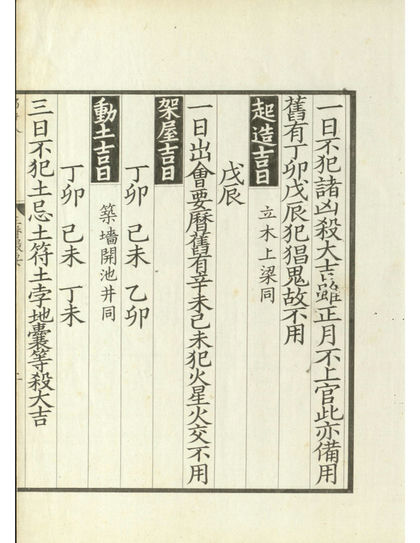 一日不犯諸凶殺大吉雖正月不上官此亦備用
舊有丁卯戊辰犯猖鬼故不用
起造吉日 立木上梁同
戊辰
一日出會要曆舊有辛未己未犯火星火交不用
架屋吉日
丁卯 己未 乙卯
動土吉日 築墻開池井同
丁卯 己未 丁未
三日不犯土忌土符土孛地囊等殺大吉